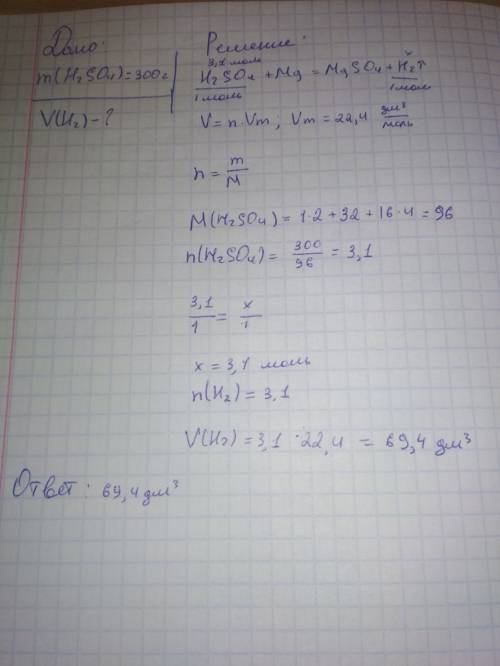 Дано:
m(H₂SO₄)=300г
V(H₂)-?
Решение:
3,1 моль x
H₂SO₄ + Mg = MgSO₄ + H₂↑
1 моль 1 моль
V = n·Vm; Vm = 22,4 дм³/моль
n = m/M
M(H₂SO₄) = 1·2+32+16·4 = 96
n(H₂SO₄) = 300/96 = 3,1
3,1/1 = x/1
x = 3,1 моль
n(H₂) = 3,1
V(H₂) = 3,1·22,4 = 69,4 дм³
Ответ: 69,4 дм³